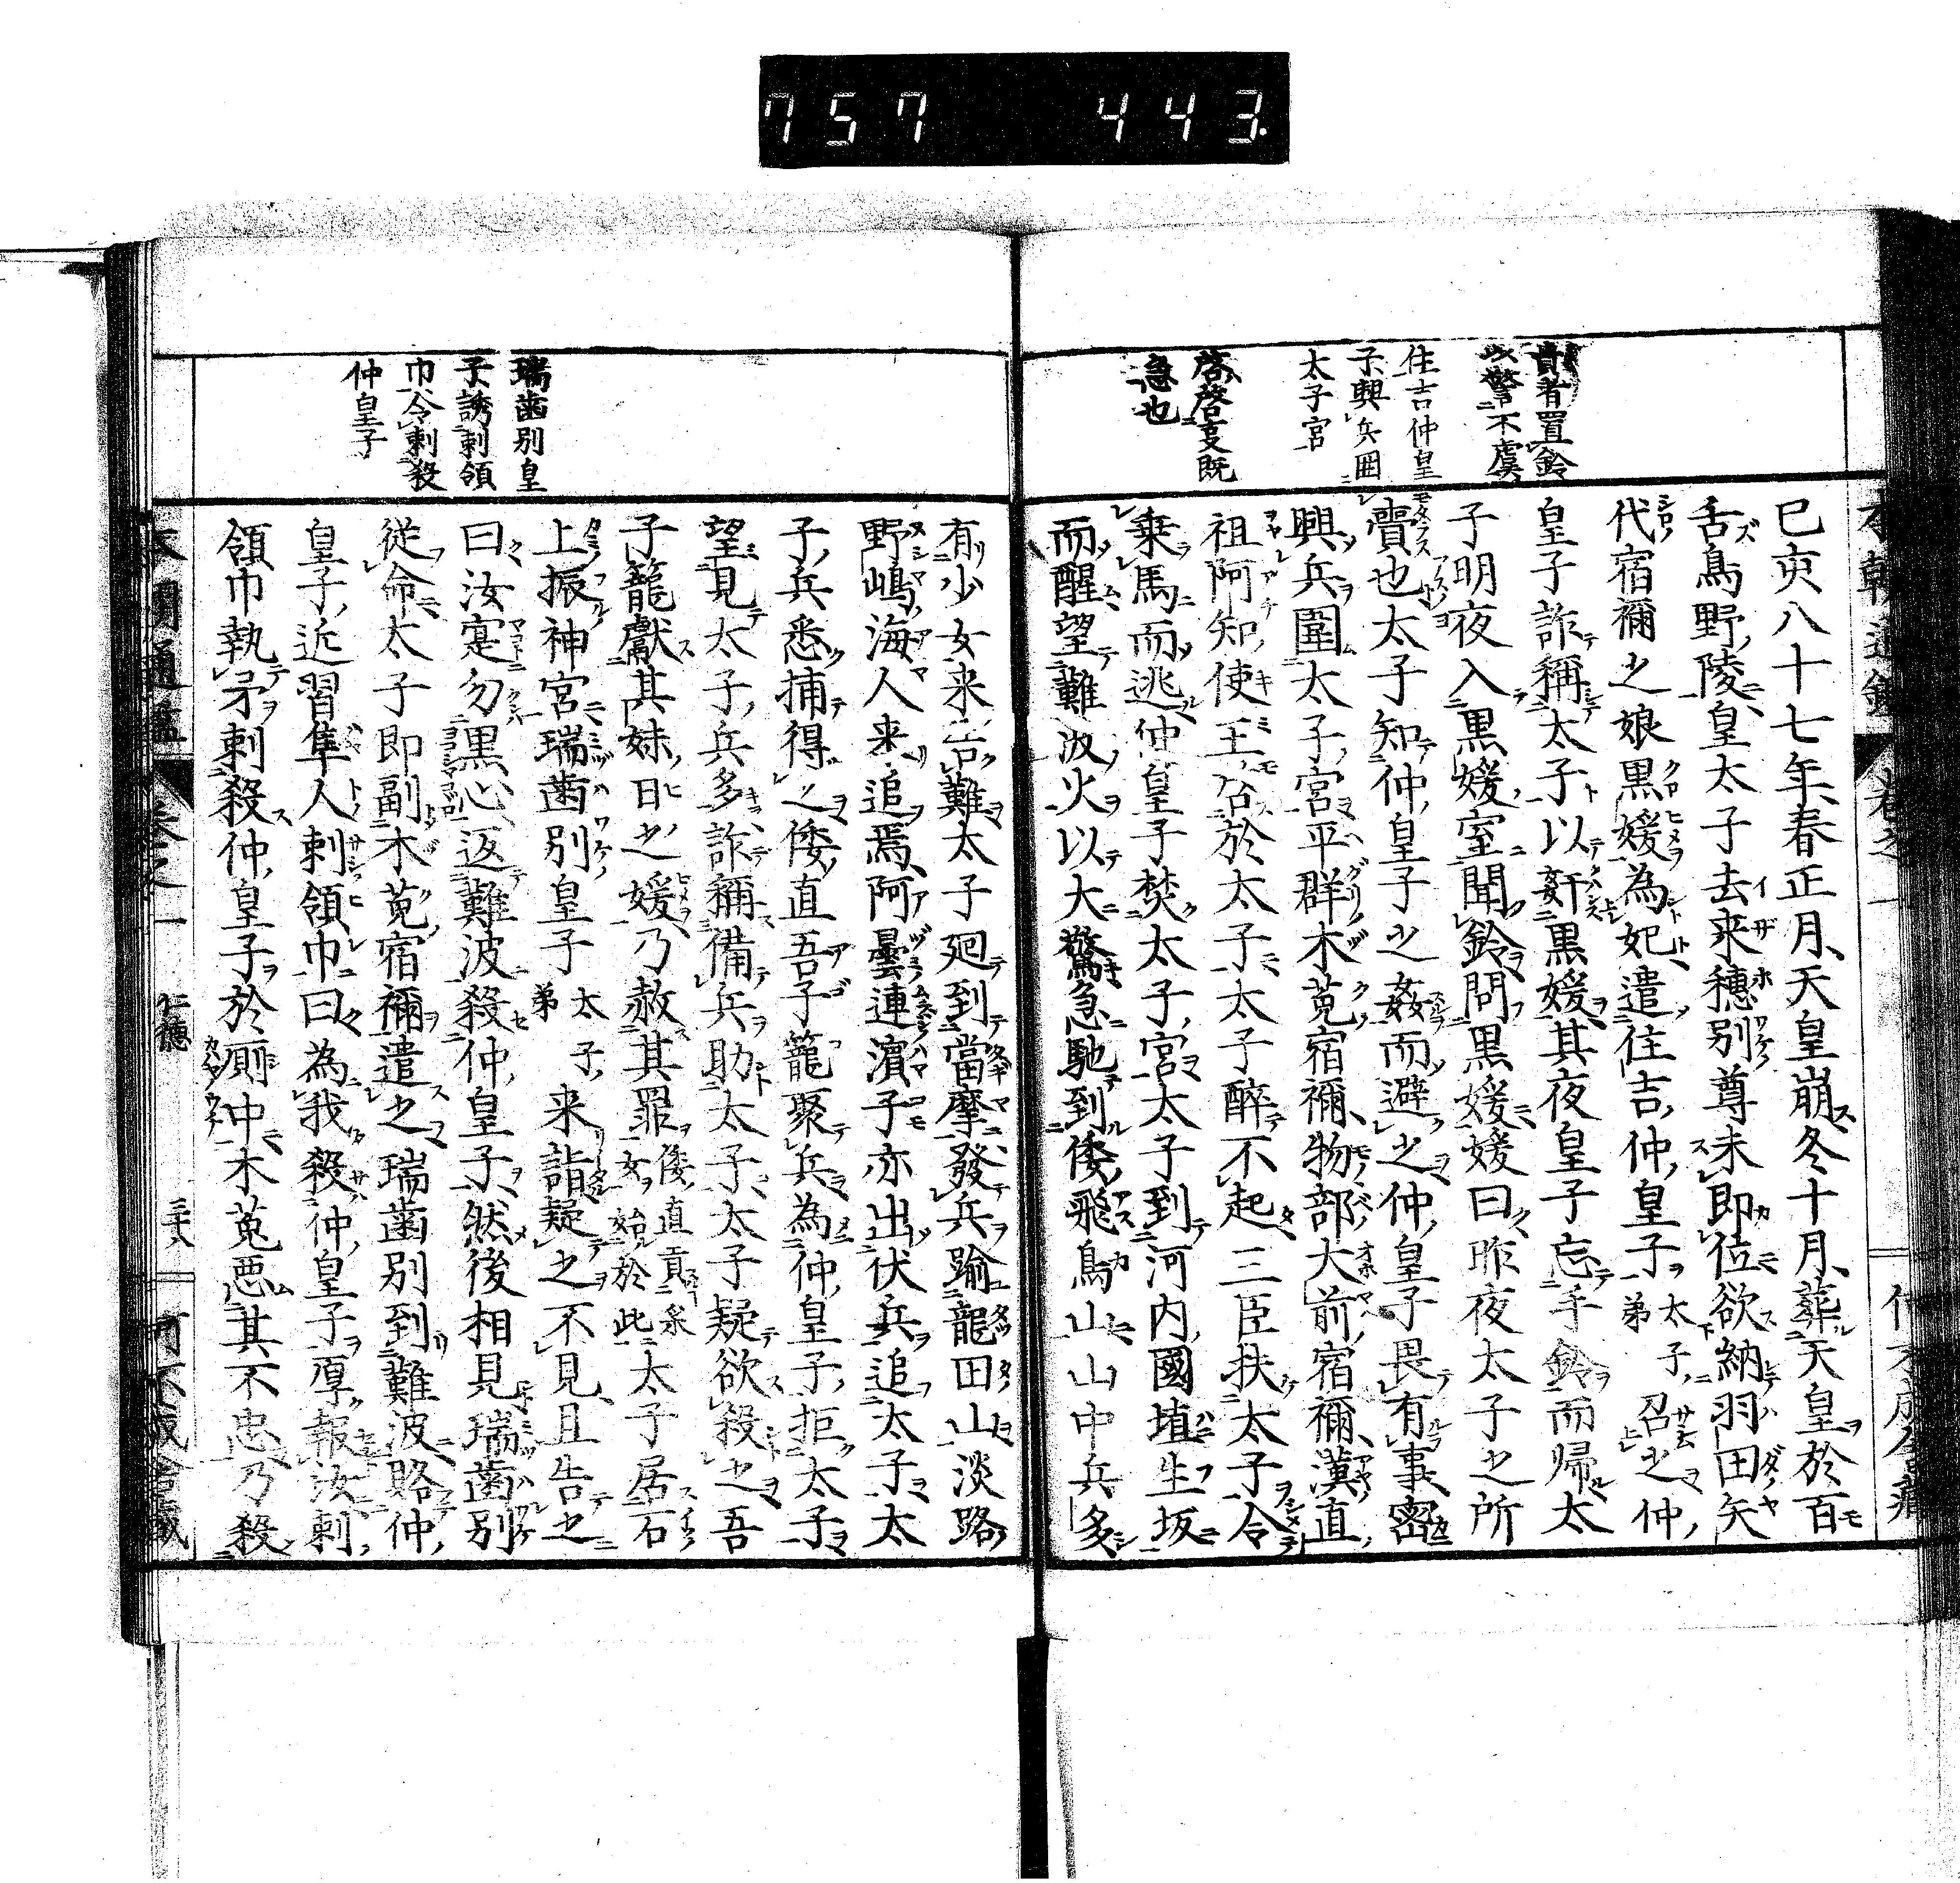 757 443.
貴者置鈴
以警不虞
住吉仲皇
子興兵囲
太子宮
啓啓叓既
急也
巳亥八十七年春正月天皇崩冬十月葬天皇於百
舌鳥野陵皇太子去来穂別尊未即位欲納羽田矢
代宿禰之娘黒媛為妃遣住吉仲皇子太子弟召之仲
皇子詐稱太子以奸黒媛其夜皇子忘手鈴而帰太
子明夜入黒媛室聞鈴問黒媛媛曰昨夜太子之所
賷也太子知仲皇子之姦而避之仲皇子畏有事密
興兵圍太子宮平群木菟宿禰物部大前宿禰漢直
祖阿知使王啓於太子太子醉不起三臣扶太子令
乗馬而逃仲皇子焚太子宮太子到河内國埴生坂
而醒望難波火以大驚急馳到倭飛鳥山山中兵多
瑞歯別皇
子誘刺領
巾令刺殺
仲皇子
有少女来告難太子廻到當摩發兵踰龍田山淡路
野嶋海人来追焉阿曇連濵子亦出伏兵追太子太
子兵悉捕得之倭直吾子籠聚兵為仲皇子拒太子
望見太子兵多詐稱備兵助太子太子疑欲殺之吾
子籠獻其妹日之媛乃赦其罪倭直貢采女始於此太子居石
上振神宮瑞歯別皇子太子弟来詣疑之不見且告之
曰汝寔勿黒心返難波殺仲皇子然後相見瑞歯別
従命太子即副木菟宿禰遣之瑞歯別到難波賂仲
皇子近習隼人刺領巾曰為我殺仲皇子厚報汝刺
領巾執矛刺殺仲皇子於厠中木菟悪其不忠乃殺
本朝通鑑 巻之一 仁徳 三十八